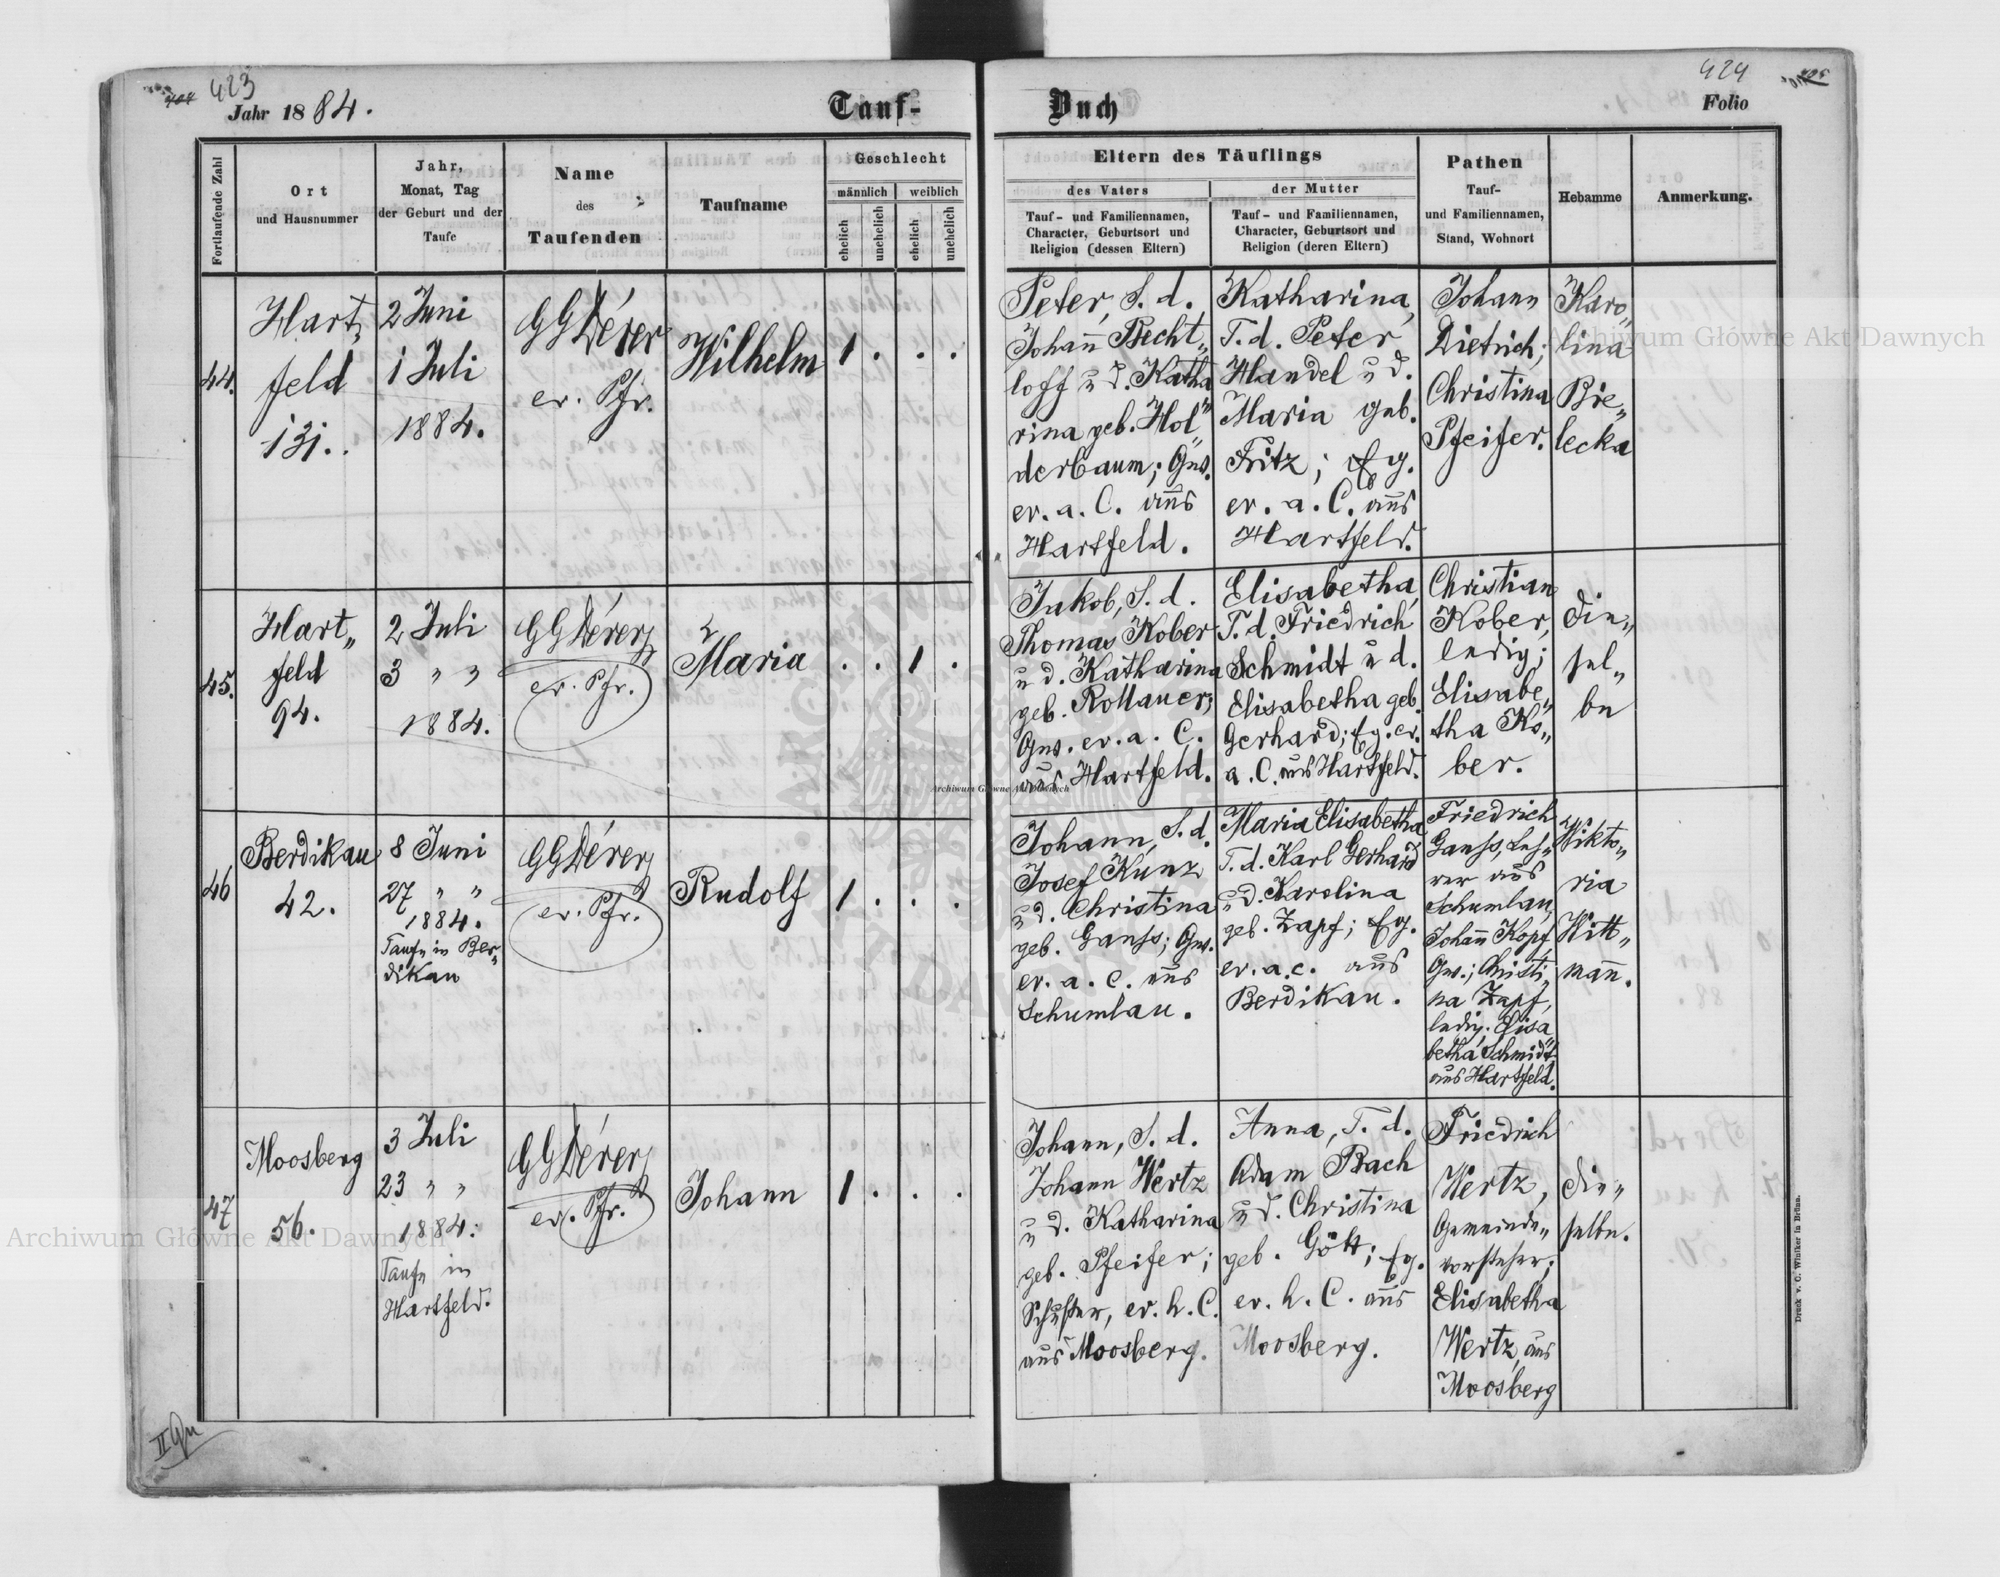 423
Jahr 1884.
Tauf-
Fortlaufende Zahl
Ort
und Hausnummer
Jahr,
Monat, Tag
der Geburt und der
Taufe
Name
des
Taufenden
Taufname
Geschlecht
männlich
weiblich
ehelich
unehelich
ehelich
unehelich
44.
Hart„
feld
131.
2 Juni
1 Juli
1884.
GGDérer
ev. Pfr.
Wilhelm
1 . . .
45.
Hart„
feld
94.
2 Juli
3 „ „
1884.
GGDérer
ev. Pfr.
Maria
. . 1 .
46
Berdikau
42.
8 Juni
27 „ „
1884.
Taufe in Ber„
dikau
GGDérer
ev. Pfr.
Rudolf
1 . . .
47
Moosberg
56.
3 Juli
23 „ „
1884.
Taufe in
Hartfeld.
GGDérer
ev. Pfr.
Johann
1 . . .
424
Buch
Folio
Eltern des Täuflings
des Vaters
Tauf- und Familiennamen,
Character, Geburtsort und
Religion (dessen Eltern)
der Mutter
Tauf- und Familiennamen,
Character, Geburtsort und
Religion (deren Eltern)
Pathen
Tauf-
und Familiennamen,
Stand, Wohnort
Hebamme
Anmerkung.
Peter, S. d.
Johann Becht„
loff u d. Katha„
rina geb. Hol„
derbaum; Gw.
ev. a. C. aus
Hartfeld.
Katharina,
T. d. Peter
Handel u d.
Maria geb.
Fritz; Eg.
ev. a. C. aus
Hartfeld.
Johann
Dietrich;
Christina
Pfeifer.
Karo„
lina
Bie„
lecka
Jakob, S. d.
Thomas Kober
u d. Katharina
geb. Rollauer;
Gw. ev. a. C.
aus Hartfeld.
Elisabetha,
T. d. Friedrich
Schmidt u d.
Elisabetha geb.
Gerhard; Eg. ev.
a. C. aus Hartfeld.
Christian
Kober,
ledig;
Elisabe„
tha Ko„
ber.
Die„
sel„
be
Johann, S. d.
Josef Kunz
u d. Christina
geb. Ganss; Gw.
ev. a. C. aus
Schumlau.
Maria Elisabetha,
T. d. Karl Gerhard
u d. Karolina
geb. Zapf; Eg.
ev. a. c. aus
Berdikau.
Friedrich
Ganss, Leh„
rer aus
Schumlau,
Johann Kopf,
Gw.; Christi„
na Zapf,
ledig. Elisa„
betha Schmidt
aus Hartfeld.
Wikto„
ria
Witt„
mann.
Johann, S. d.
Johann Wertz
u d. Katharina
geb. Pfeifer;
Schuster, ev. h. C.
aus Moosberg.
Anna, T. d.
Adam Bach
u d. Christina
geb. Gött; Eg.
ev. h. C. aus
Moosberg.
Friedrich
Wertz,
Gemeinde„
vorsteher;
Elisabetha
Wertz, aus
Moosberg
Die„
selbe.
Druck v. C. Winiker in Brünn.
Archiwum Główne Akt Dawnych
Archiwum Główne Akt Dawnych
Archiwum Główne Akt Dawnych